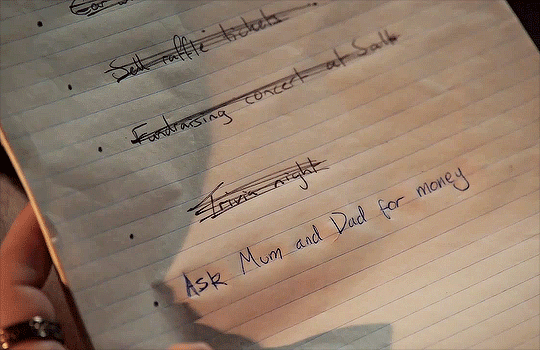 Sell raffle tickets
Fundraising concert at Salt
Trivia night
Ask Mum and Dad for money